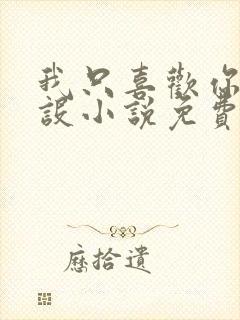 我只喜歡你
設小說免費
歷拾遺